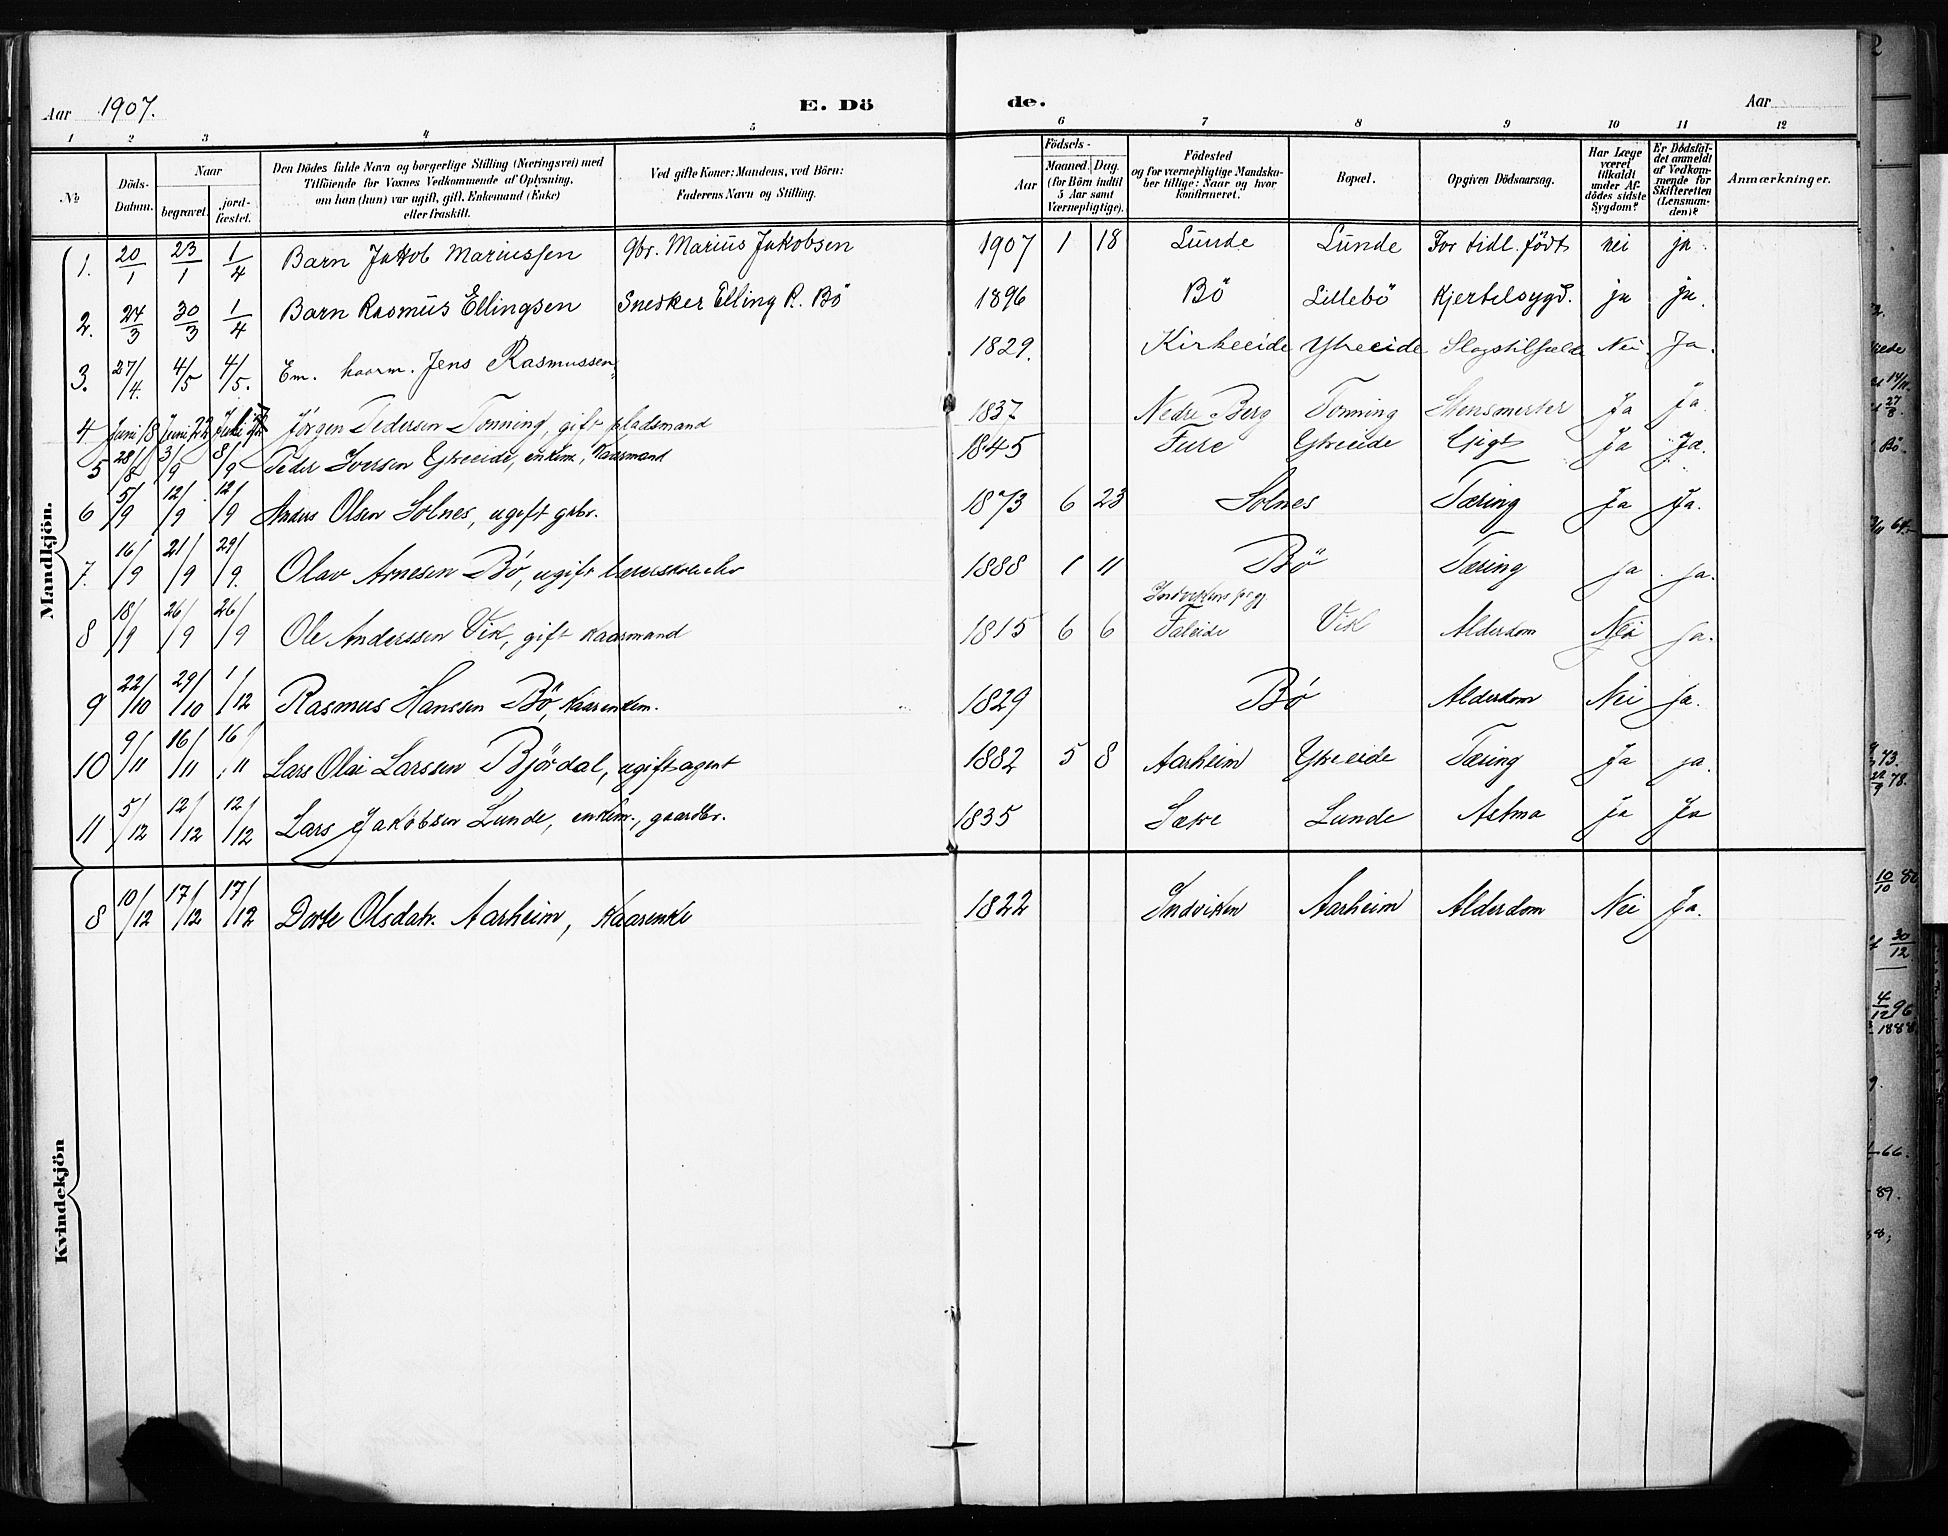 Aar 1907.
E. Dö
de.
Aar
1 2 3 4 5 6 7 8 9 10 11 12
№
Döds-Datum.
Naar
begravet.
jord-fæstet.
Den Dödes fulde Navn og borgerlige Stilling (Næringsvei) med Tilföiende for Voxnes Vedkommende af Oplysning, om han (hun) var ugift, gift, Enkemand (Enke) eller fraskilt.
Ved gifte Koner: Mandens, ved Börn: Faderens Navn og Stilling.
Födsels-
Aar
Maaned. Dag.
(for Börn indtil 5 Aar samt Værnepligtige).
Födested og for værnepligtige Mandskaber tillige: Naar og hvor konfirmeret.
Bopæl.
Opgiven Dödsaarsag.
Har Læge været tilkaldt under Afdödes sidste Sygdom?
Er Dödsfaldet anmeldt af Vedkommende for Skifteretten (Lensmanden)?
Anmærkninger.
Mandkjön.
1. 20/1 23/1 1/4 Barn Jakob Mariussen gbr. Marius Jakobsen 1907 1 18 Lunde Lunde For tidl. født nei ja
2. 24/3 30/3 1/4 Barn Rasmus Ellingsen Snedker Elling R. Bö 1896 Bö Lillebö Kjertelsygd. ja ja.
3. 27/4. 4/5 4/5. Em. kaarm. Jens Rasmussen 1829. Kirkeeide Ytreeide Slagtilfælde Nei. Ja.
4. Juni 18 Juni 22 Juli Jørgen Pedersen Tonning, gift pladsmand 1837 Nedre Berg Tonning Stensmerter Ja Ja
5 28/8 3/9 8/9 Peder Iversen Ytreeide, enkem., kaarmand 1845 Fure Ytreeide Gigt Ja Ja.
6 5/9 12/9 12/9 Anders Olsen Solnes, ugift grbr. 1873 6 23 Solnes Tæring Ja Ja.
7. 16/9 21/9 29/9. Olav Arnesen Bö, ugift lærerskoleelev 1888 1 11 Bö Tæring ja ja.
8 18/9 26/9 26/9 Ole Anderssen Vik, gift kaarmand 1815 6 6 Indvikens prgj. Faleide Vik Alderdom Nei ja.
9 22/10 29/10 1/12 Rasmus Hanssen Bö, kaarenkem. 1829 Bö Alderdom Nei ja.
10 9/11 16/11 16/11 Lars Olai Larssen Björdal, ugift agent 1882 5 8 Aarheim Ytreeide Tæring Ja ja.
11 5/12 12/12 12/12 Lars Jakobsen Lunde, enkem., gaardbr. 1835 Sætre Lunde Astma ja Ja
Kvindekjön
8 10/12 17/12 17/12 Dorte Olsdatr. Aarheim, Kaarenke 1822 Indviken Aarheim Alderdom Nei Ja.